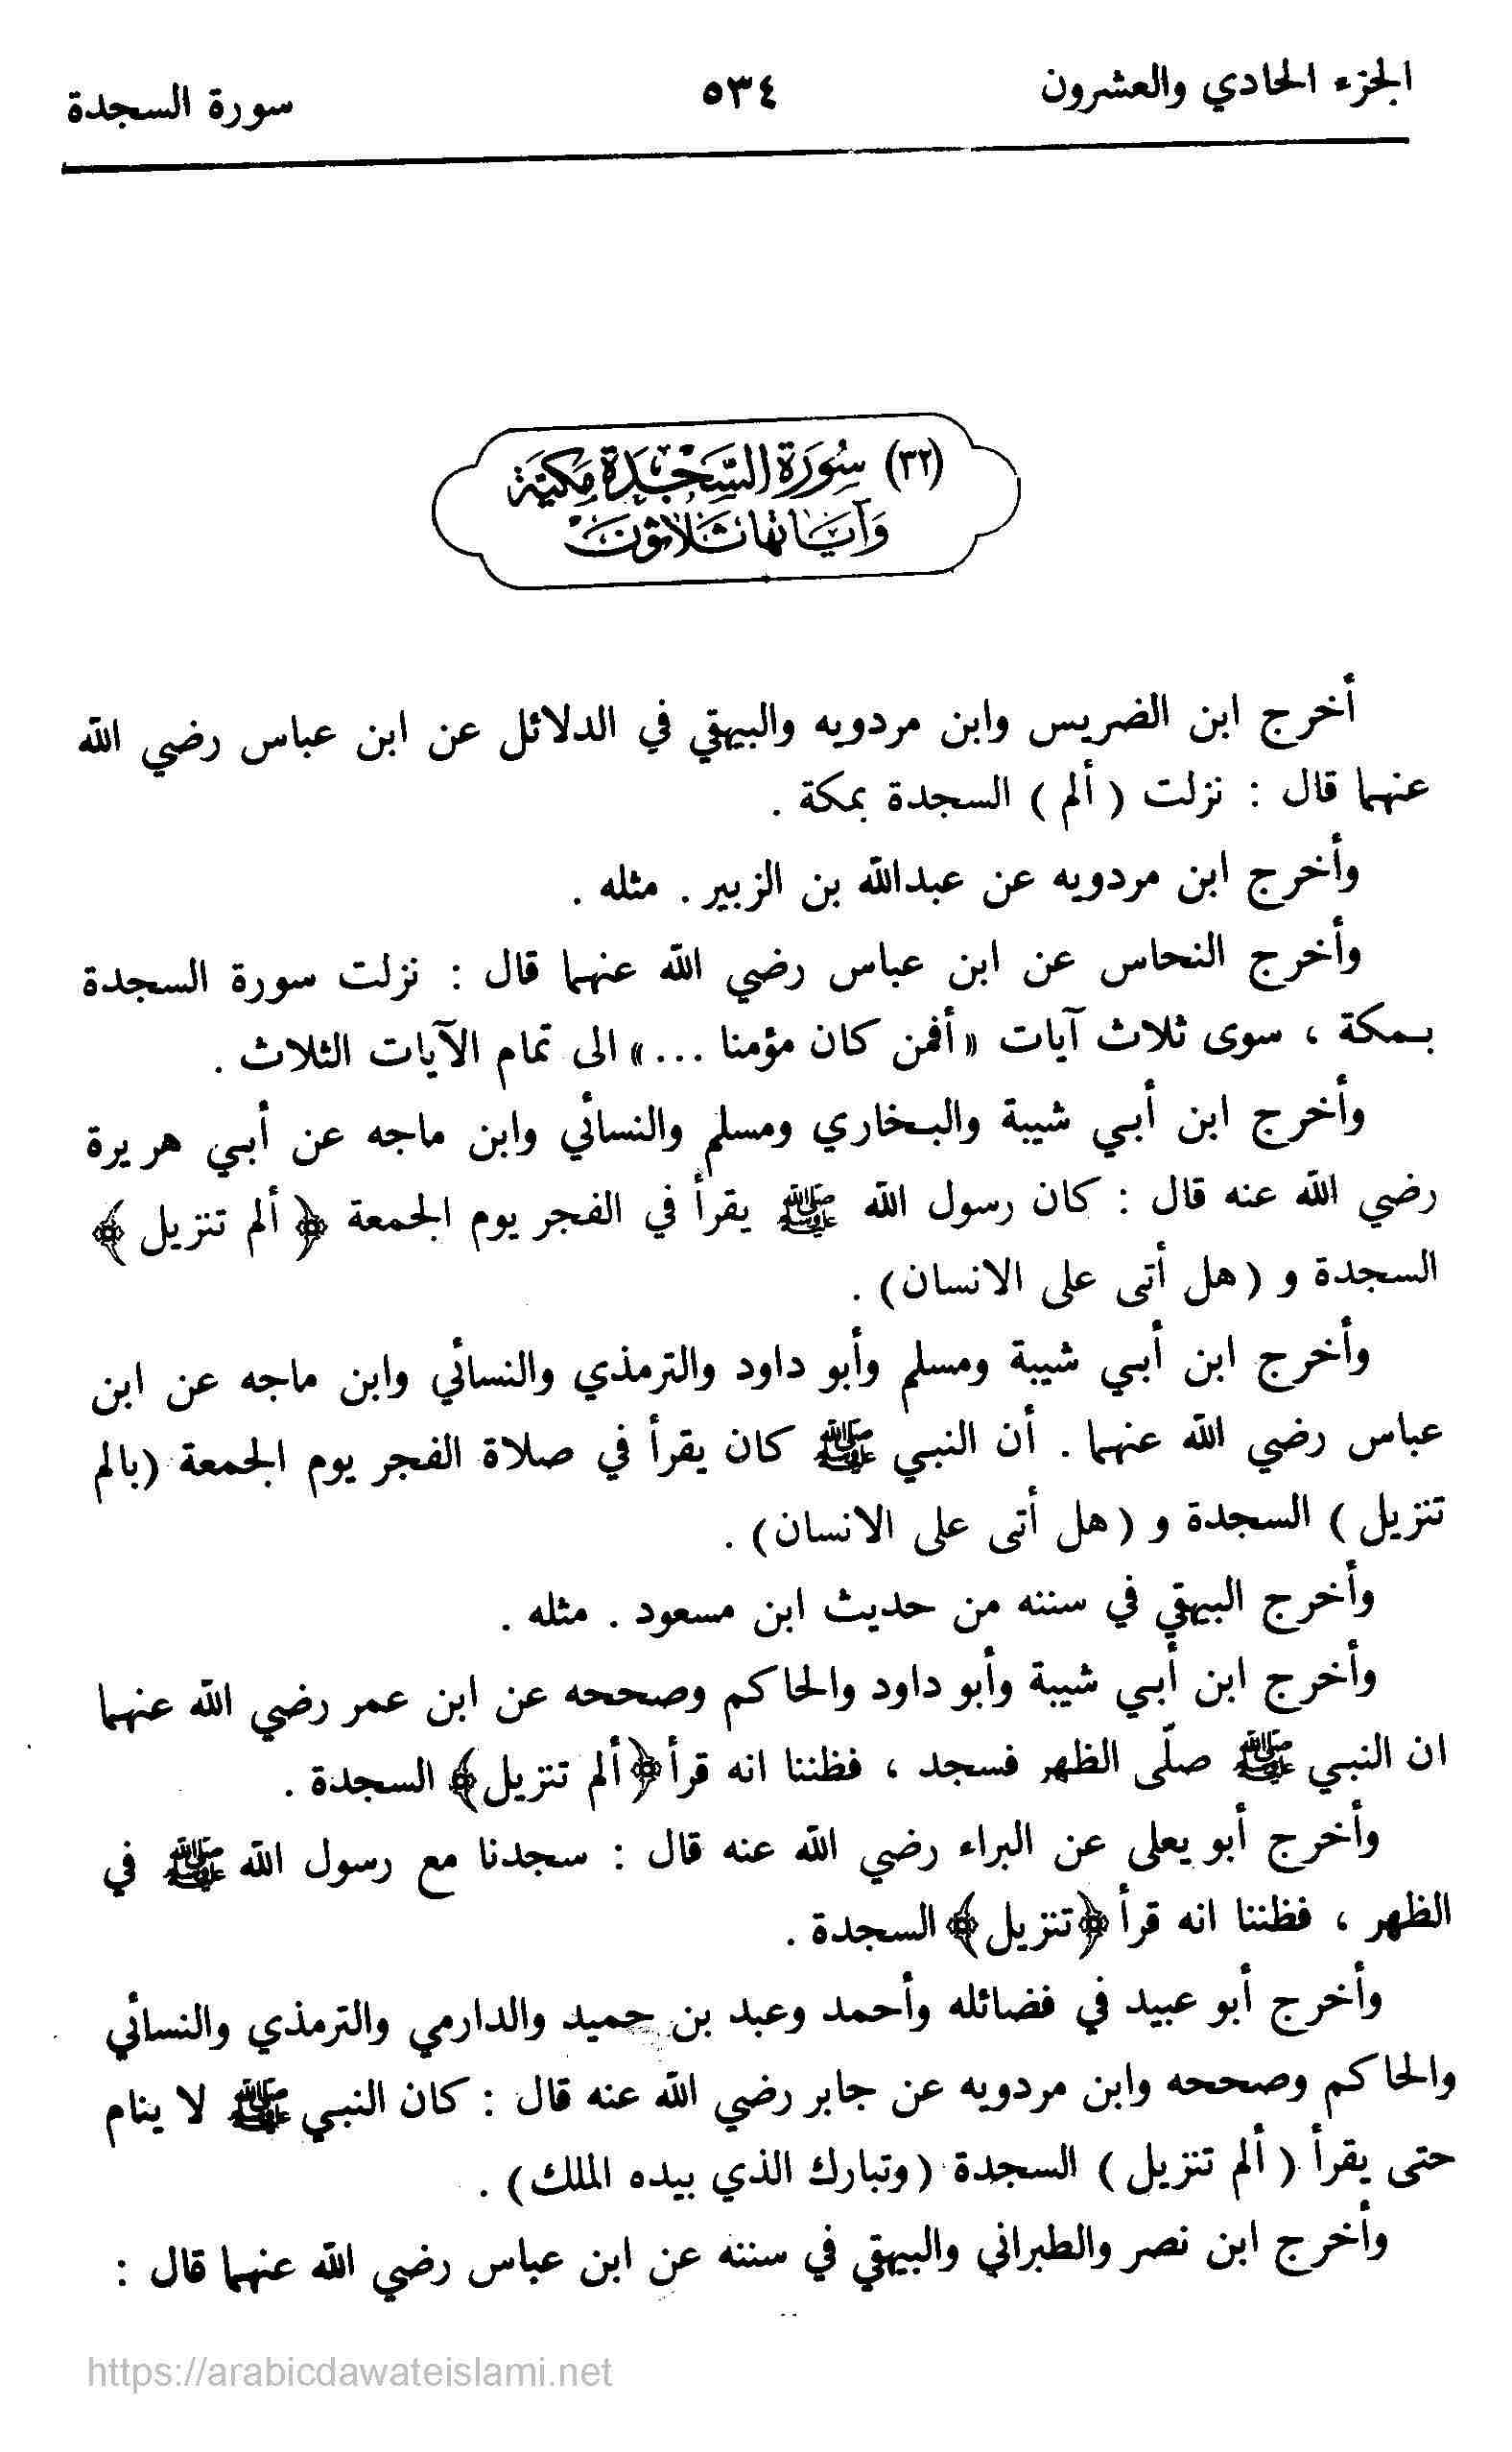 الجزء الحادي والعشرون ٥٣٤ سورة السجدة
(٣٢) سُورَة السَّجْدَة مَكيَّة
وَآيَاتها ثَلَاثُونَ
أخرج ابن الضريس وابن مردويه والبيهقي في الدلائل عن ابن عباس رضي الله
عنهما قال : نزلت ( ألم ) السجدة بمكة .
وأخرج ابن مردويه عن عبدالله بن الزبير . مثله .
وأخرج النحاس عن ابن عباس رضي الله عنهما قال : نزلت سورة السجدة
بـمكة ، سوى ثلاث آيات «أفمن كان مؤمنا ...» الى تمام الآيات الثلاث .
وأخرج ابن أبـي شيبة والبـخاري ومسلم والنسائي وابن ماجه عن أبـي هريرة
رضي الله عنه قال : كان رسول الله ﷺ يقرأ في الفجر يوم الجمعة ﴿ ألم تنزيل ﴾
السجدة و (هل أتى على الانسان) .
وأخرج ابن أبـي شيبة ومسلم وأبو داود والترمذي والنسائي وابن ماجه عن ابن
عباس رضي الله عنهما . أن النبـي ﷺ كان يقرأ في صلاة الفجر يوم الجمعة (بالم
تنزيل ) السجدة و (هل أتى على الانسان) .
وأخرج البيهقي في سننه من حديث ابن مسعود . مثله .
وأخرج ابن أبـي شيبة وأبو داود والحاكم وصححه عن ابن عمر رضي الله عنهما
ان النبـي ﷺ صلّى الظهر فسجد ، فظننا انه قرأ ﴿ألم تنزيل﴾ السجدة .
وأخرج أبو يعلى عن البراء رضي الله عنه قال : سجدنا مع رسول الله ﷺ في
الظهر ، فظننا انه قرأ ﴿تنزيل﴾ السجدة .
وأخرج أبو عبيد في فضائله وأحمد وعبد بن حميد والدارمي والترمذي والنسائي
والحاكم وصححه وابن مردويه عن جابر رضي الله عنه قال : كان النبـي ﷺ لا ينام
حتى يقرأ ( ألم تنزيل ) السجدة (وتبارك الذي بيده الملك) .
وأخرج ابن نصر والطبراني والبيهقي في سننه عن ابن عباس رضي الله عنهما قال :
https://arabicdawateislami.net